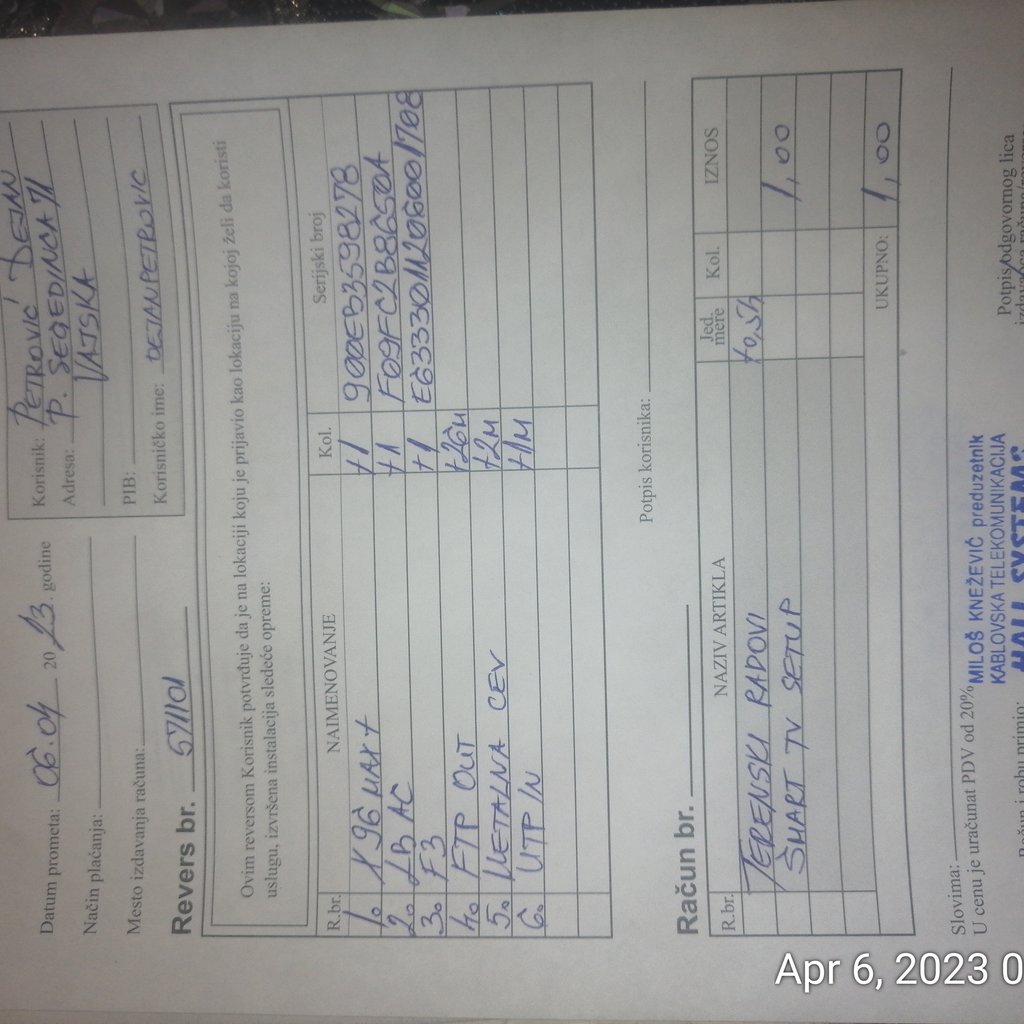 Korisnik: PETROVIĆ DEJAN
Adresa: P. SEGEDINCA 71
VAJSKA
PIB:
Korisničko ime: DEJANPETROVIC
Datum prometa: 06.04 2023. godine
Način plaćanja:
Mesto izdavanja računa:
Revers br. 571101
Ovim reversom Korisnik potvrđuje da je na lokaciji koju je prijavio kao lokaciju na kojoj želi da koristi
uslugu, izvršena instalacija sledeće opreme:
R.br. NAIMENOVANJE Kol. Serijski broj
1. X96 MAX+ +1 900EB3598278
2. LB AC +1 F09FC2B8650A
3. F3 +1
4. FTP OUT +26M
5. METALNA CEV +2M
6. UTP IN +1M
Potpis korisnika:
Račun br.
R.br. NAZIV ARTIKLA Jed. mere Kol. IZNOS
TERENSKI RADOVI +0,5h
SMART TV SETUP 1,00
UKUPNO: 1,00
Slovima:
U cenu je uračunat PDV od 20%
MILOŠ KNEŽEVIĆ preduzetnik
KABLOVSKA TELEKOMUNIKACIJA
HALL SYSTEMS
Račun i robu primio:
Potpis odgovornog lica
Apr 6, 2023 0